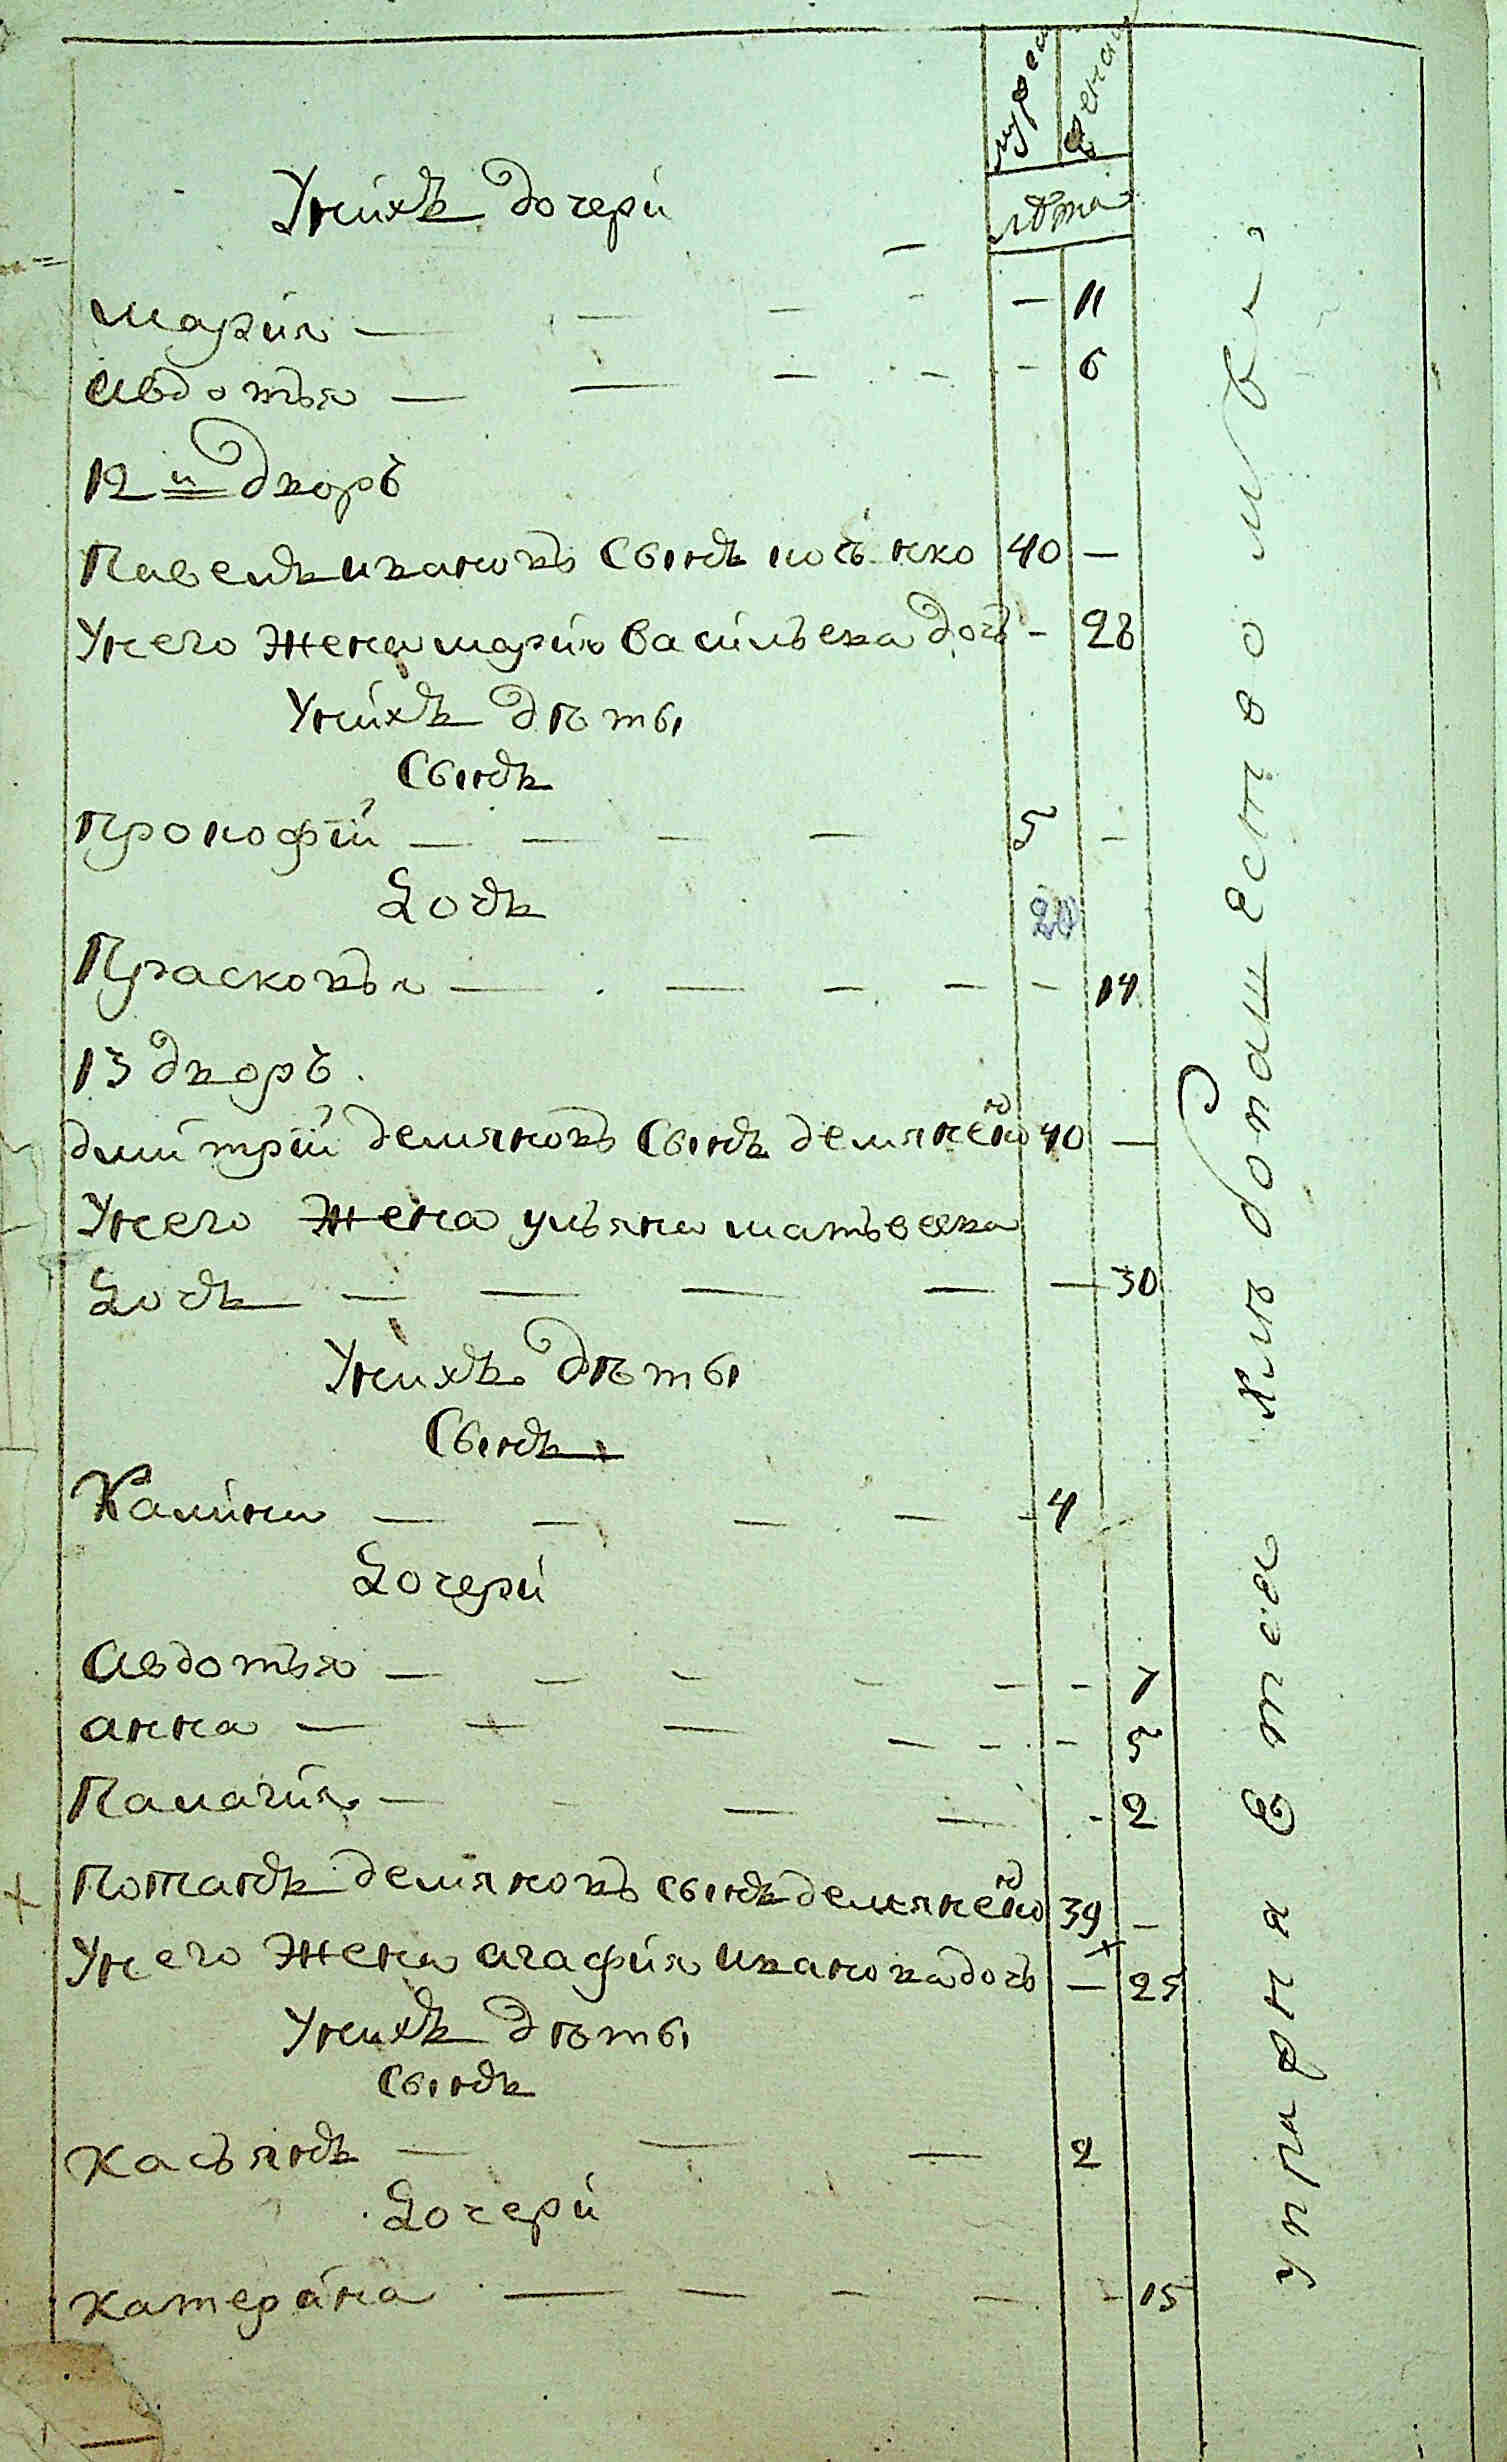 мужеска женска
лѣта
Унихъ дочери
Мария — 11
Авдотья — 6
12й дворъ
Павелъ ивановъ сынъ 40 —
Унего жена мария васильева дочь — 28
Унихъ дѣти
Сынъ
Прокофій — 5 —
Дочь
20
Прасковья — 14
13 дворъ
дмитрій демяновъ сынъ демяненко 40 —
Унего жена ульяна матвеева
Дочь — 30
Унихъ дѣти
Сынъ
Калина — 4
Дочери
Авдотья — 7
анна — 5
Палагия — 2
Потапъ демяновъ сынъ демяненко 39 —
Унего жена агафия иванова дочь — 25
Унихъ дѣти
сынъ
Касьянъ — 2
Дочери
катерина — 15